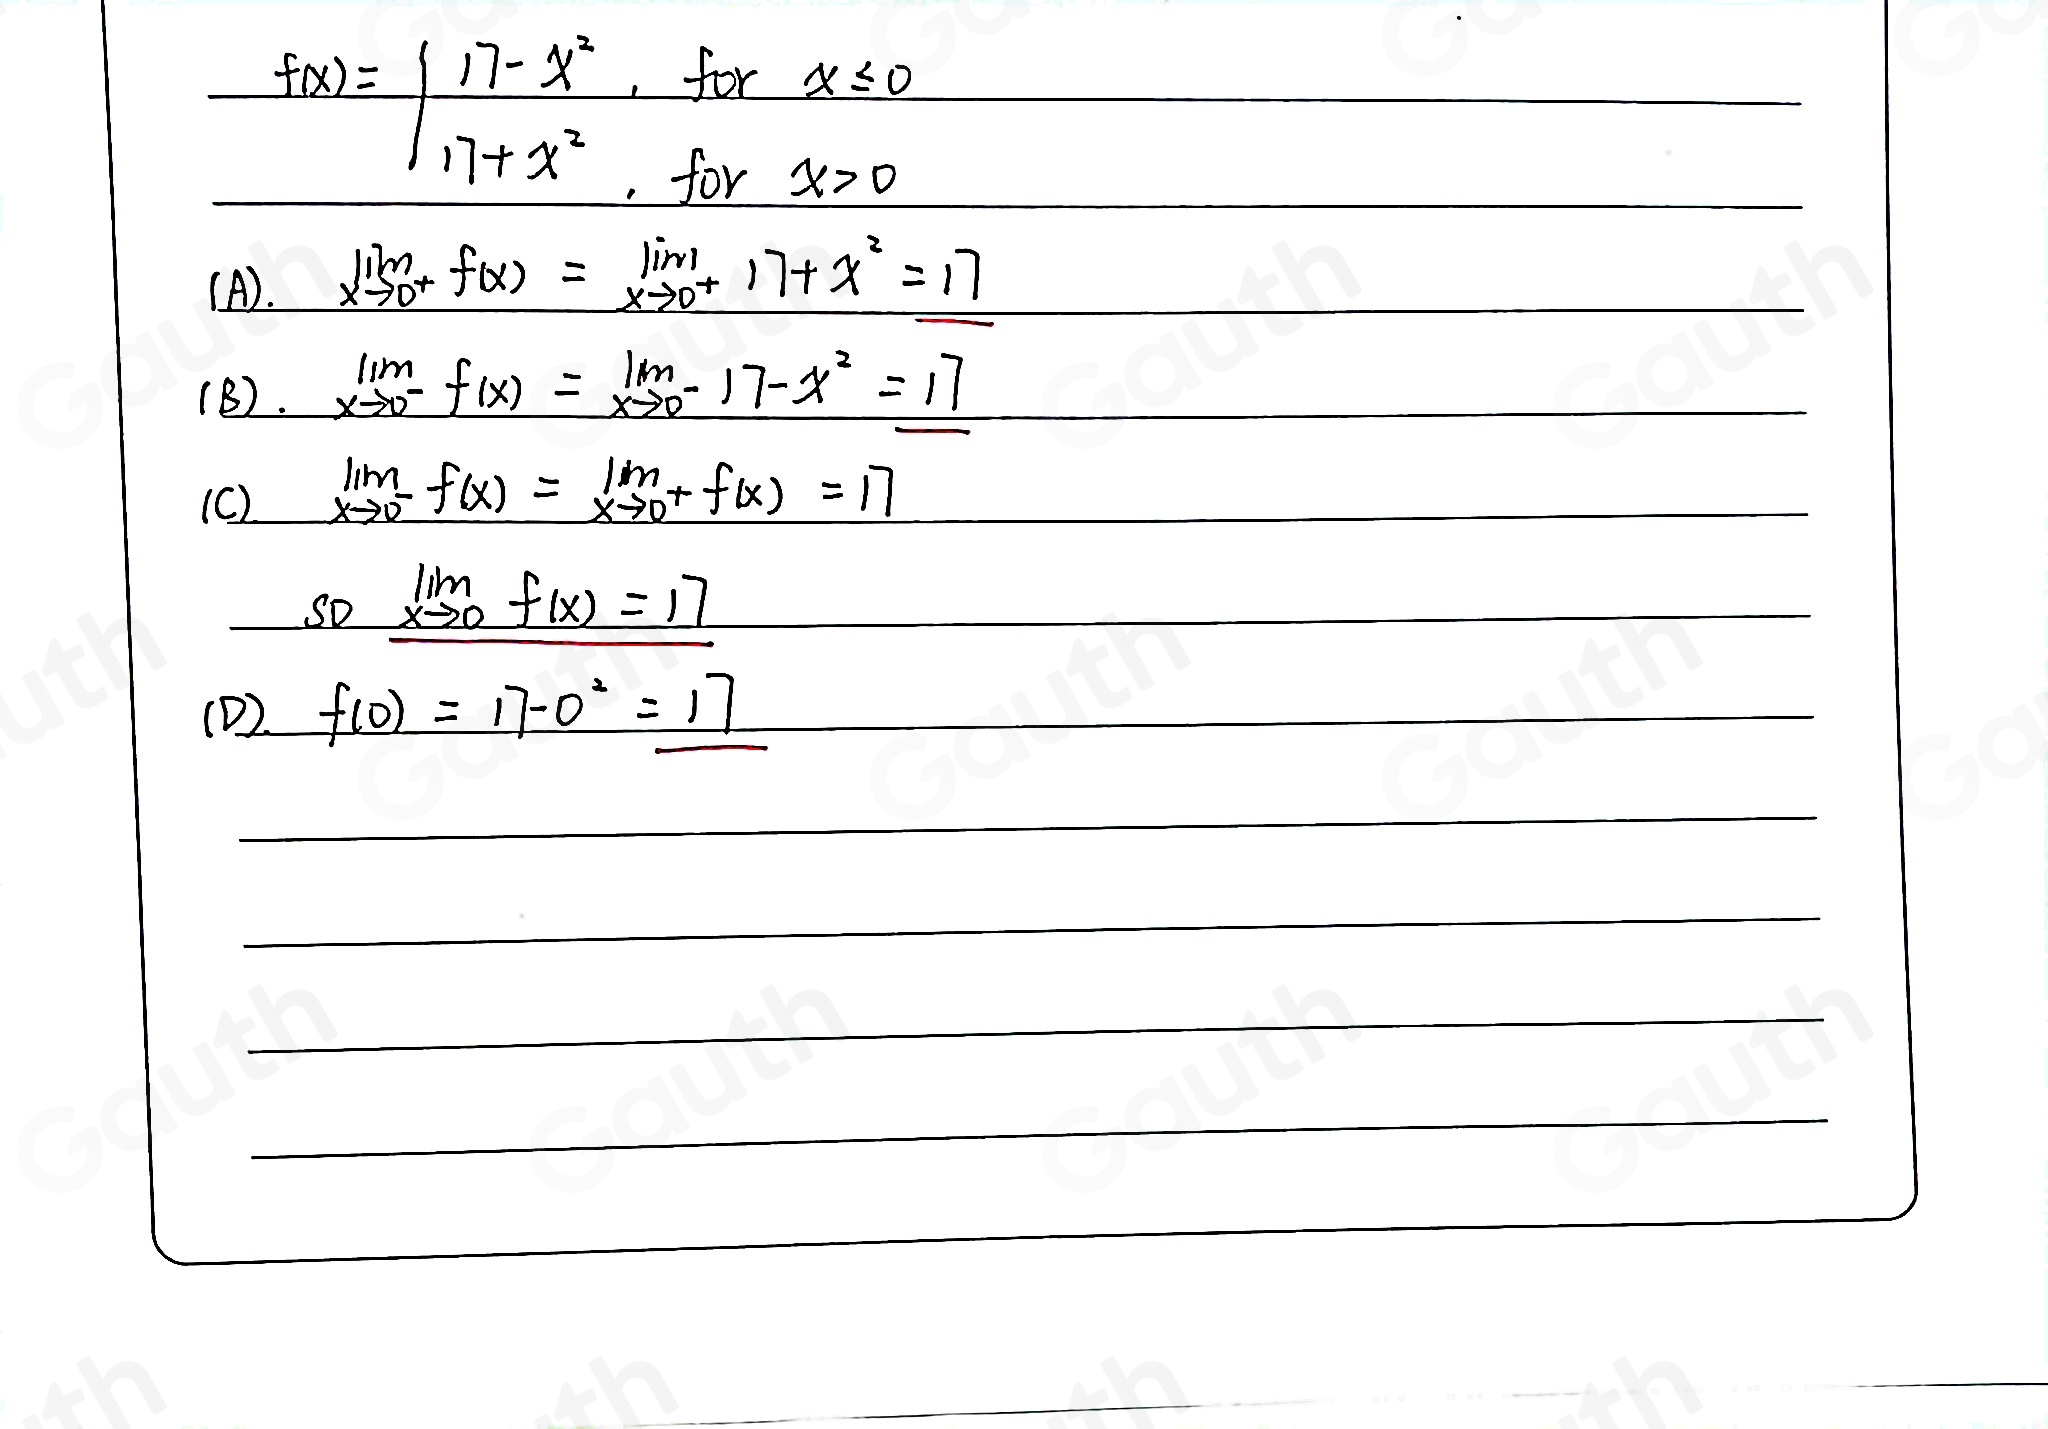 f(x) = { 17 - x² , for x ≤ 0
17 + x² , for x > 0
(A). lim x→0⁺ f(x) = lim x→0⁺ 17 + x² = 17
(B). lim x→0⁻ f(x) = lim x→0⁻ 17 - x² = 17
(C) lim x→0⁻ f(x) = lim x→0⁺ f(x) = 17
so lim x→0 f(x) = 17
(D). f(0) = 17 - 0² = 17